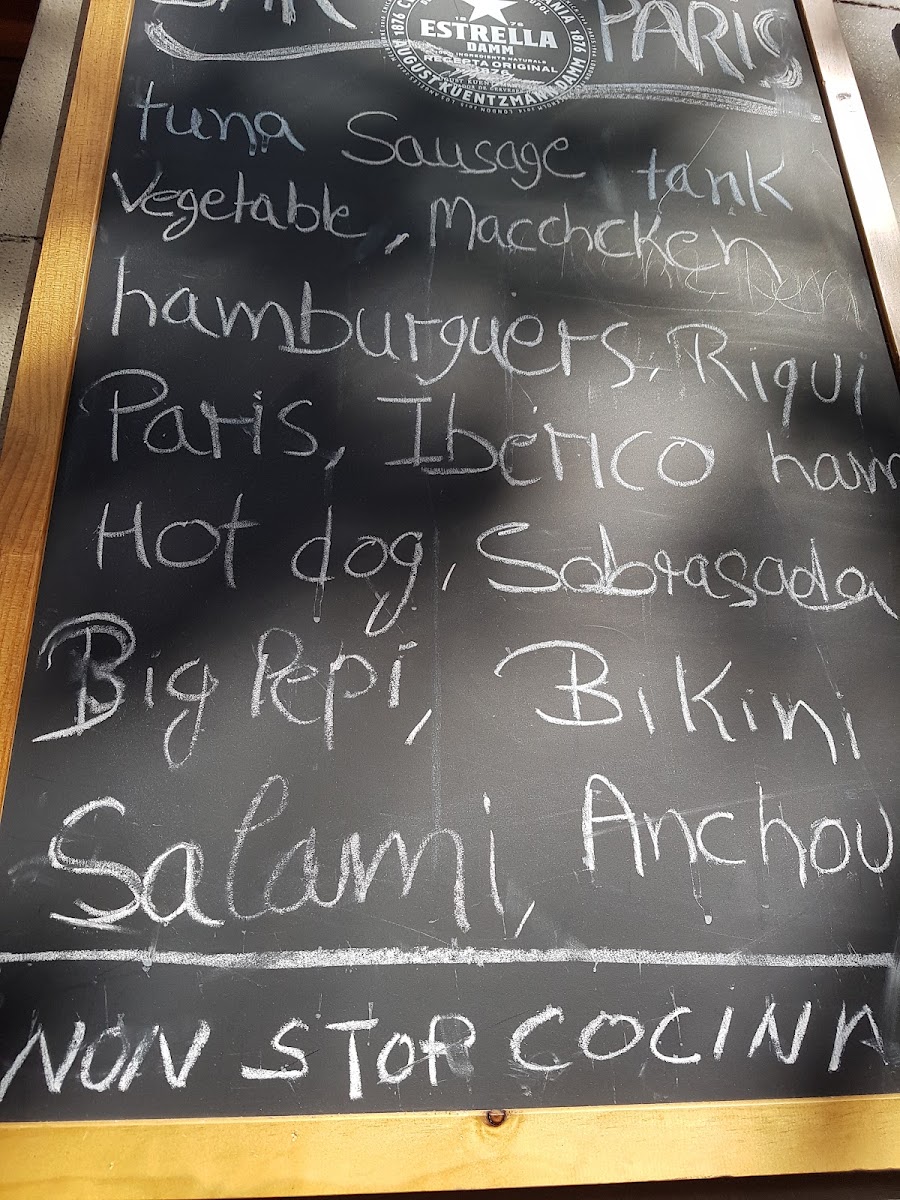 BAR PARIS
ESTRELLA
DAMM
RECEPTA ORIGINAL
1876
AUGUST KUENTZMANN DAMM 1876
tuna Sausage tank
vegetable, Macchcken
hamburguers, Riqui
Paris, Ibérico ham
Hot dog, Sobrasada
Big Pepi, Bikini
Salami, Anchou
NON STOP COCINA